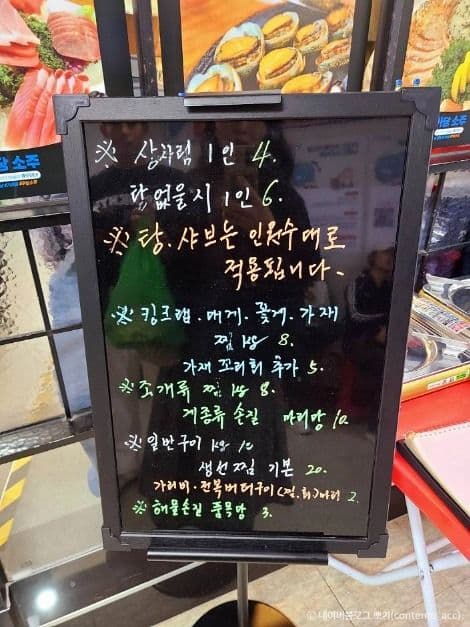 ※ 상차림 1인 4.
탕없을시 1인 6.
※ 탕. 샤브는 인원수대로
적용됩니다.
※ 킹크랩. 대게. 꽃게. 가재
찜 kg 8.
가재 꼬리회 추가 5.
※ 조개류 찜 kg 8.
게종류 손질 마리당 10.
※ 일반구이 kg 10
생선찜 기본 20.
가리비. 전복버터구이(찜.회)마리 2.
※ 해물손질 품목당 3.
소주
소주